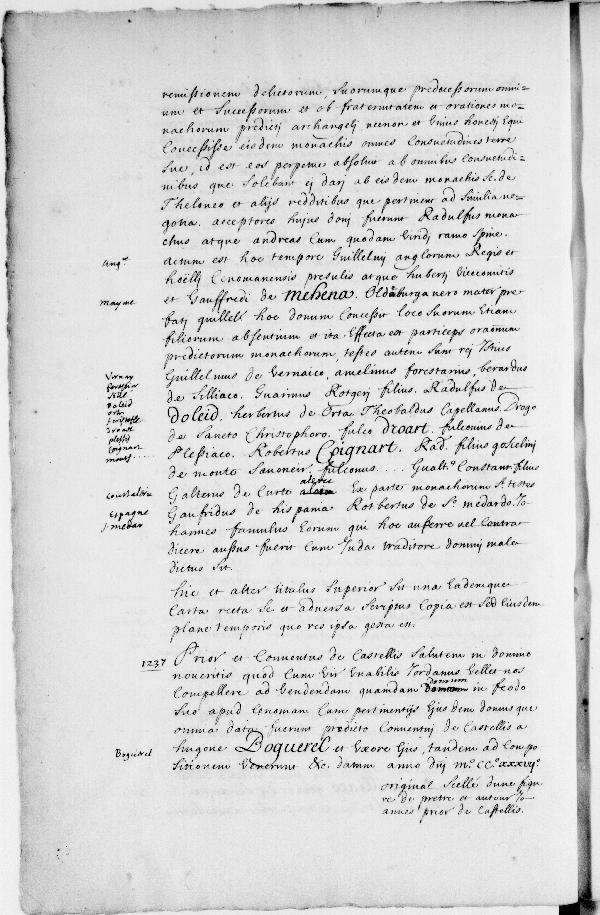 remissionem delictorum, suorumque predecessorum omni=
um et Successorum et ob fraternitatem et orationes mo=
nachorum predictj archangelj necnon et unius honestj Equi
Concessisse eisdem monachis omnes Consuetudines terre
sue, id est eos perpetue absoluit ab omnibus Consuetudi=
nibus que Solebant ej darj ab eisdem monachis Sc. de
Theloneo et alijs redditibus que pertinent ad Similia ne=
gotia. acceptores hujus donj fuerunt Radulfus mona
chus atque andreas Cum quodam Viridj ramo Spine.
Ang.e
actum est hoc tempore Guillelmj anglorum Regis et
hoëllj Cenomanensis presulis atque hubertj Vicecomitis
Mayne
et Gauffredi de Mehena. Oldeburga uero mater pre
fatj guillelmj hoc donum Concessit loco Suorum Etiam
filiorum absentium et ita Effecta est particeps oraõnum
predictorum monachorum, testes autem sunt rej Istius
Vernay
forestier
Guillelmus de Vernaico, amelinus forestarius, berardus
Sillé
de Silliaco. Guarinus Rotgerj filius. Radulfus de
Doleid
Orte
Doleid. herbertus de Orta Theobaldus Capellanus. Drogo
S. Cristofle
droart
de Sancto Christophoro. fulco Droart. fulconus de
plessis
Coignart
Plessiaco. Robertus Coignart. Rad. filius goscelinj
mont....
de monte Sauoneir, fulconus .... Gualt.s Constant. filius
Courtalérie
Galterus de Curte alerie
Espagne
Ex parte monachorum St. testes
Gaufridus de hispania Rotbertus de St. medardo. Jo
S. medar
hannes famulus Eorum qui hoc auferre uel Contra
dicere aussus fuerit Cum Juda traditore dominj male
dictus Sit.
hic et alter titulus Superior Sit una Eademque
Carta recta Sc et aduersa Scriptus Copia est Sed Eiusdem
plane temporis quo res ipsa gesta est.
1237
Prior et Conuentus de Castellis Salutem in domino
noueritis quod Cum Vir Venabilis Jordanus Vellet nos
Compellere ad Vendendam quamdam domum in feodo
Suo apud Cenomam Cum pertinentijs Ejusdem domus que
omnia data fuerunt predicto Conuentuj de Castellis a
Boquerel
hugone Boquerel et Uxore Ejus, tandem ad Compo
Sitionem Venerunt &c. datum anno dnj m.o CC.o xxxvij.o
original Scellé dune figu
re de pretre et autour Jo
annes prior de Castellis.